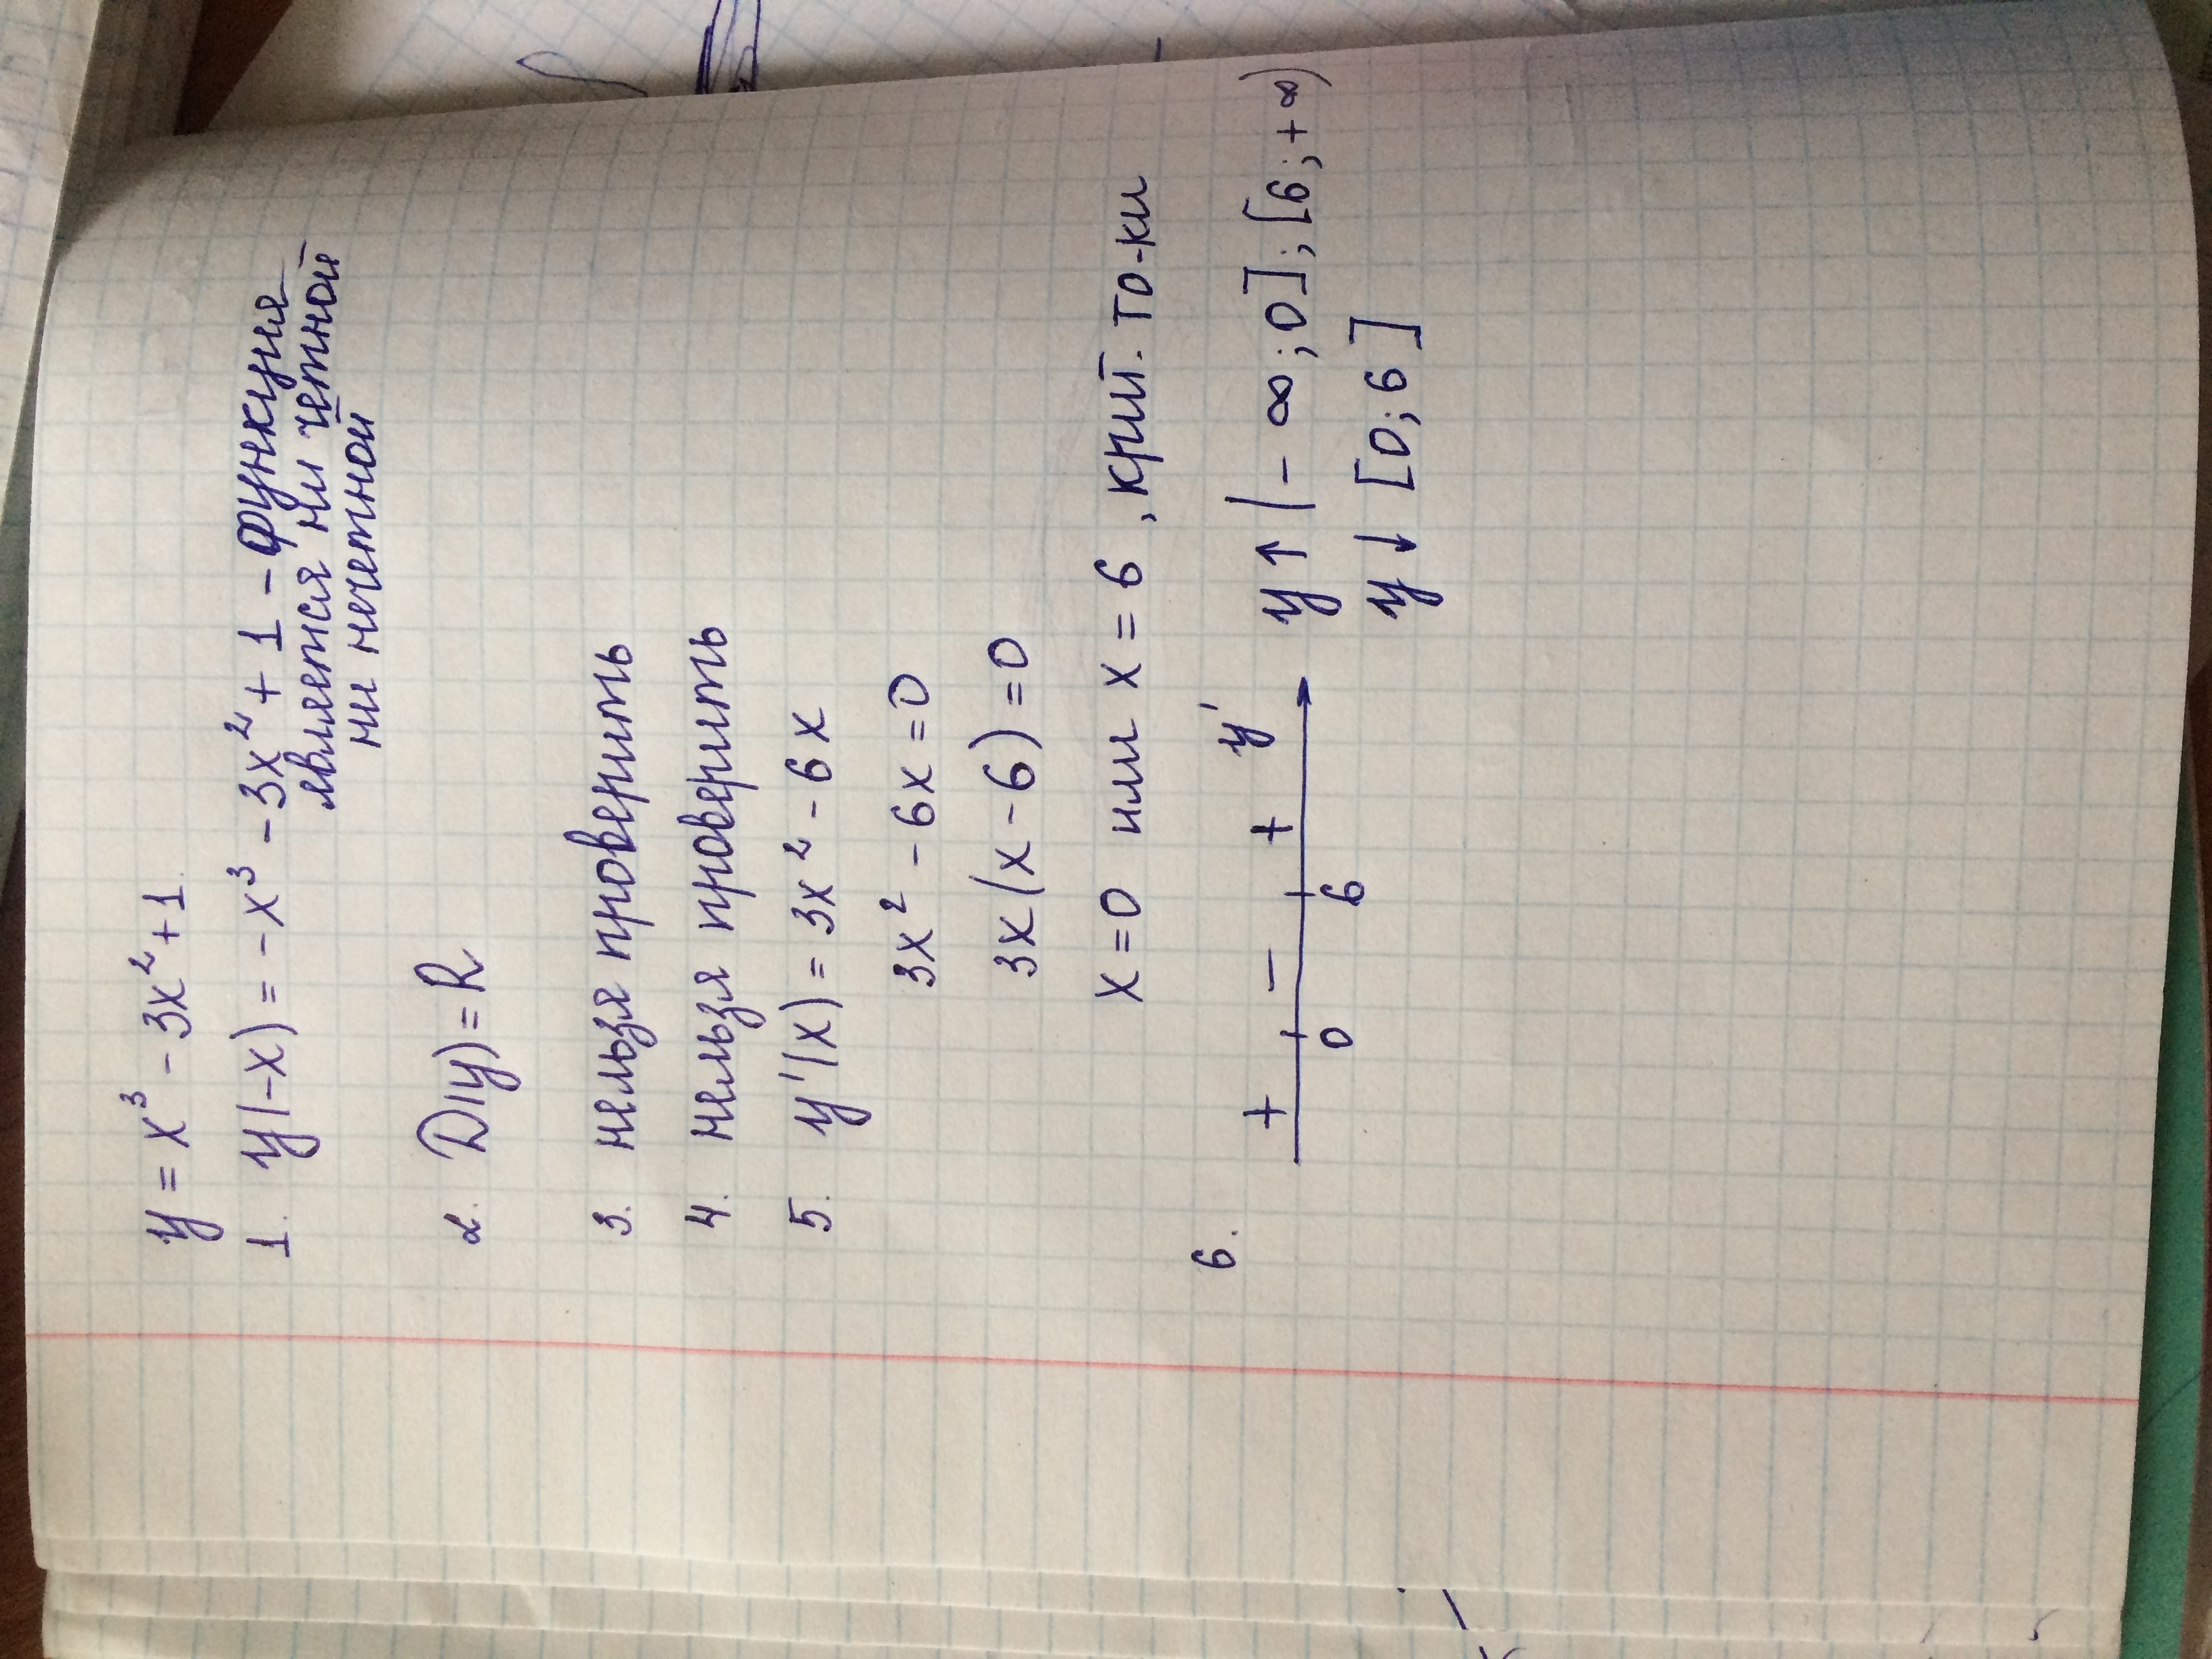 y = x³ - 3x² + 1.
1. y(-x) = -x³ - 3x² + 1 - функция
является ни чётной
ни нечетной
2. D(y) = R
3. нельзя проверить
4. нельзя проверить
5. y'(x) = 3x² - 6x
3x² - 6x = 0
3x(x - 6) = 0
x = 0 или x = 6, крит. то-ки
6. + - + y' y ↑ (-∞; 0]; [6; +∞)
0 6 y ↓ [0; 6]